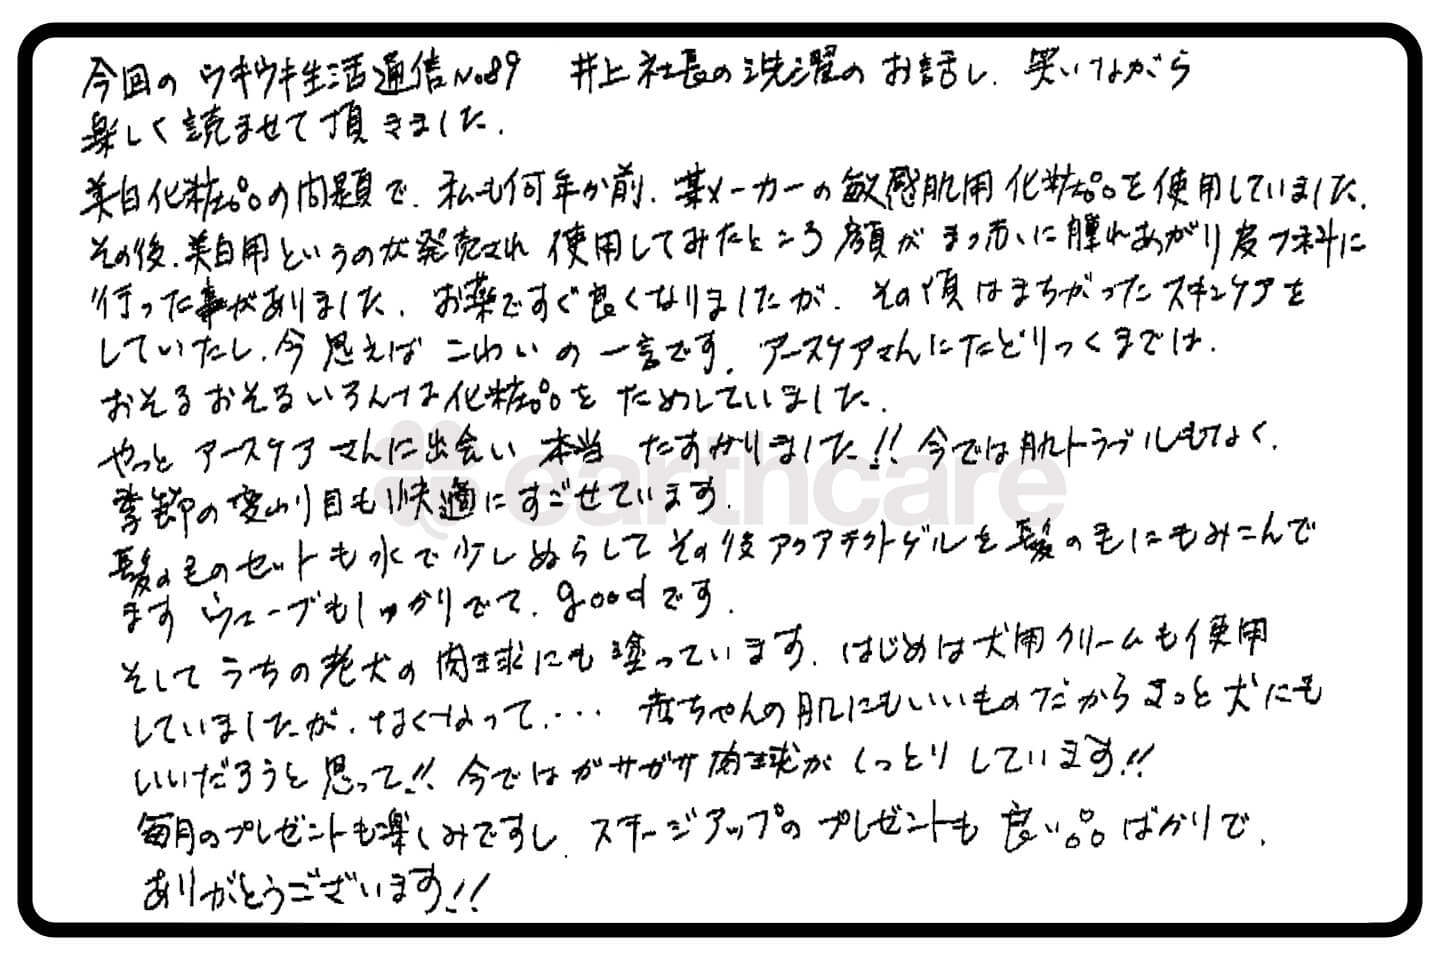 今回の ウキウキ生活通信No.89 井上社長の洗濯のお話し、笑いながら
楽しく読ませて頂きました。
美白化粧品の問題で、私も何年か前、某メーカーの敏感肌用化粧品を使用していました。
その後、美白用というのが発売され 使用してみたところ 顔がまっ赤に腫れあがり皮フ科に
行った事がありました。お薬ですぐ良くなりましたが、その頃はまちがったスキンケアを
していたし、今思えば こわいの一言です。アースケアさんにたどりつくまでは、
おそるおそるいろんな化粧品を ためしていました。
やっと アースケアさんに出会い 本当 たすかりました!! 今では肌トラブルもなく、
季節の変わり目も快適にすごせています。
髪の毛のセットも水で少しぬらしてその後アクアテクトゲルを髪の毛にもみこんで
ます ウェーブもしっかりでて、goodです。
そして うちの老犬の肉球にも塗っています。はじめは犬用クリームも使用
していましたが、なくなって、… 赤ちゃんの肌にもいいものだからきっと犬にも
いいだろうと思って!! 今ではガサガサ肉球がしっとりしています!!
毎月のプレゼントも楽しみですし、ステージアップのプレゼントも 良い品ばかりで、
ありがとうございます!!
earthcare